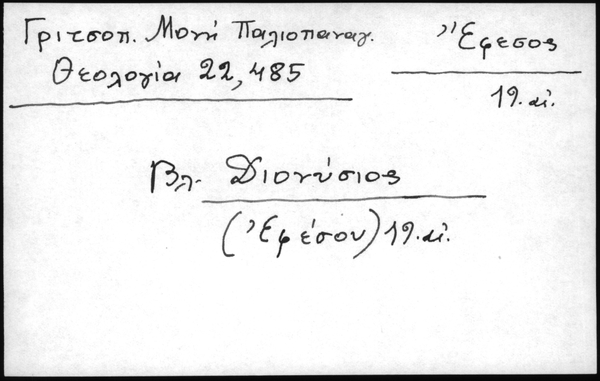 Γριτσοπ. Μονή Παλιοπαναγ.
Θεολογία 22, 485
Ἔφεσος
19. αἰ.
Βλ. Διονύσιος
(Ἐφέσου) 19. αἰ.